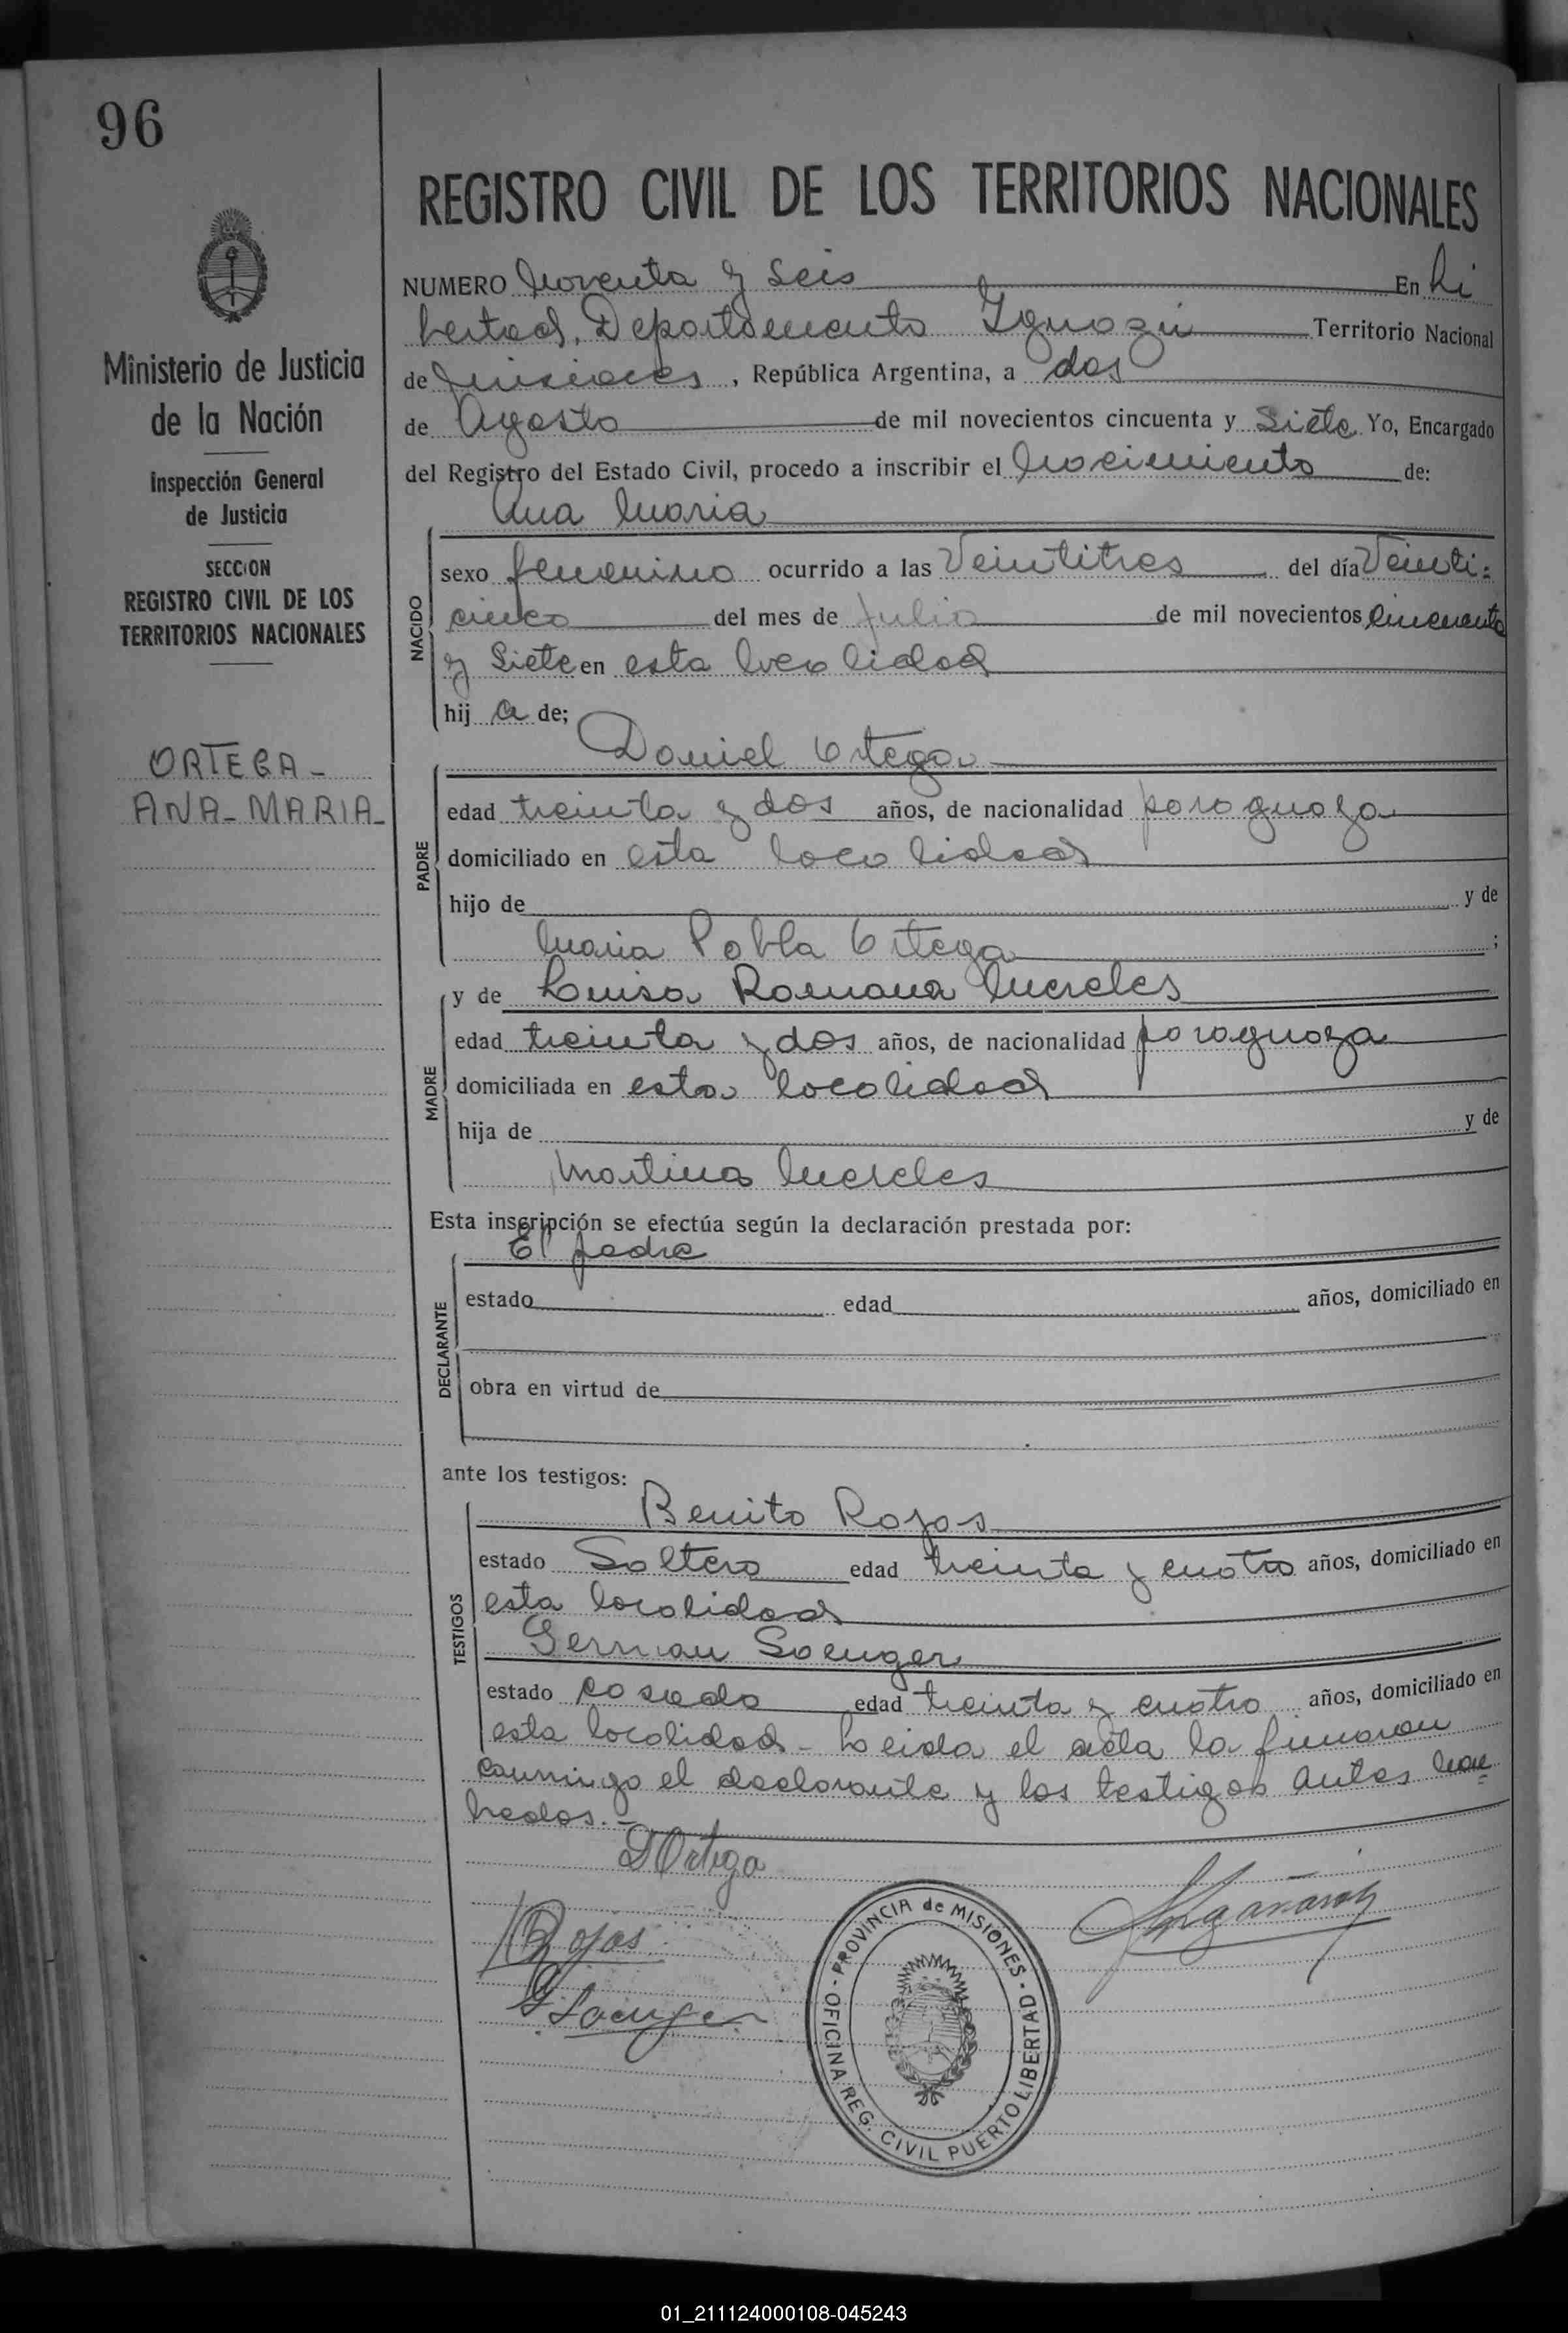 96
REGISTRO CIVIL DE LOS TERRITORIOS NACIONALES
Ministerio de Justicia
de la Nación
Inspección General
de Justicia
SECCION
REGISTRO CIVIL DE LOS
TERRITORIOS NACIONALES
ORTEGA-
ANA-MARIA-
NUMERO Noventa y Seis En Li
bertad, Departamento Iguazú Territorio Nacional
de Misiones, República Argentina, a dos
de Agosto de mil novecientos cincuenta y Siete Yo, Encargado
del Registro del Estado Civil, procedo a inscribir el Nacimiento de:
Ana Maria
NACIDO
sexo femenino ocurrido a las Veintitres del día Veinti-
cinco del mes de Julio de mil novecientos cincuenta
y Siete en esta localidad
hij a de;
Daniel Ortega
PADRE
edad treinta y dos años, de nacionalidad paraguaya
domiciliado en esta localidad
hijo de y de
Maria Pabla Ortega ;
y de Luisa Ramona Mereles
MADRE
edad treinta y dos años, de nacionalidad paraguaya
domiciliada en esta localidad
hija de y de
Martina Mereles
Esta inscripción se efectúa según la declaración prestada por:
El padre
DECLARANTE
estado edad años, domiciliado en
obra en virtud de
ante los testigos:
Benito Rojas
TESTIGOS
estado Soltero edad treinta y cuatro años, domiciliado en
esta localidad
German Saenger
estado casado edad treinta y cuatro años, domiciliado en
esta localidad - Leida el acta la firmaron
conmigo el declarante y los testigos antes nom
brados.-
D Ortega
B Rojas
G Saenger
PROVINCIA de MISIONES - OFICINA REG. CIVIL PUERTO LIBERTAD
01_211124000108-045243